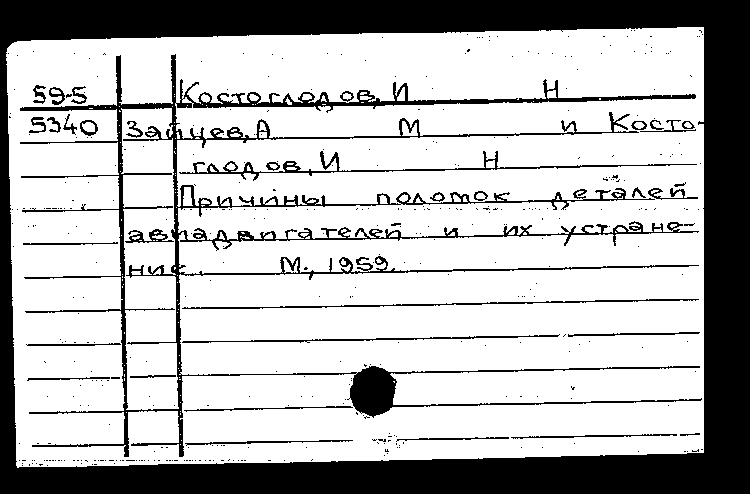 59-5 Костоглодов, И Н
5340 Зайцев, А М и Косто-
глодов, И Н
Причины поломок деталей
авиадвигателей и их устране-
ние. М., 1959.